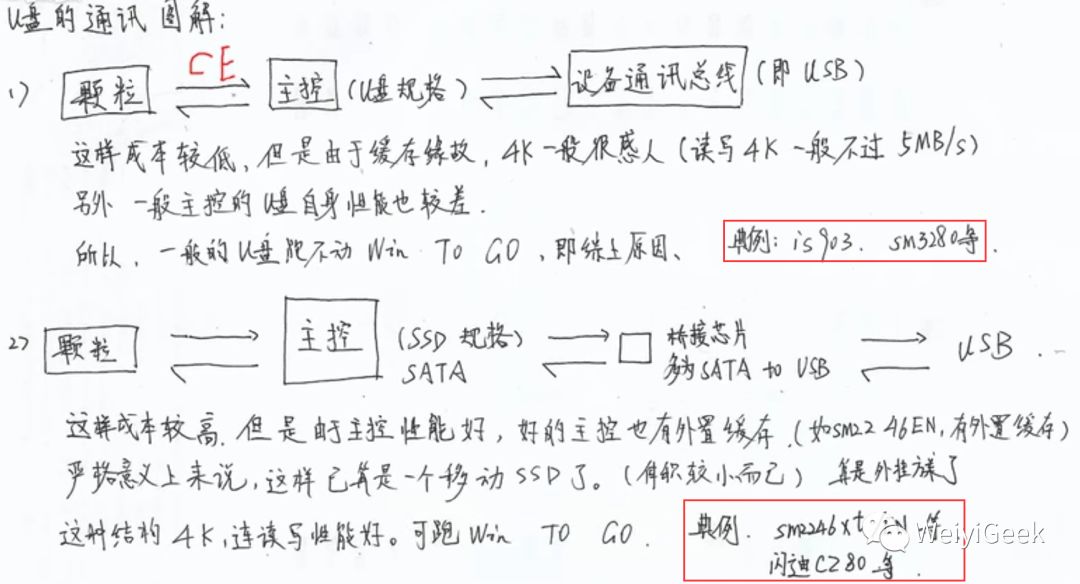 U盘的通讯图解：
CE
1) 颗粒 主控 (U盘规格) 设备通讯总线 (即 USB)
这样成本较低，但是由于缓存缘故，4K一般很感人 (读写4K一般不过5MB/s)
另外 一般主控的U盘自身性能也较差.
所以，一般的U盘跑不动 Win TO GO，即综上原因、 典例：is903. sm3280等.
2) 颗粒 主控 (SSD 规格) SATA 桥接芯片 多为SATA to USB USB
这样成本较高. 但是由于主控性能好，好的主控也有外置缓存. (如sm2246EN,有外置缓存)
严格意义上来说，这样已算是一个移动SSD了。(体积较小而已) 算是外挂方案了
这种结构4K,连读写性能好。可跑Win TO GO. 典例. sm2246xt 等
闪迪CZ80等.
WeiyiGeek